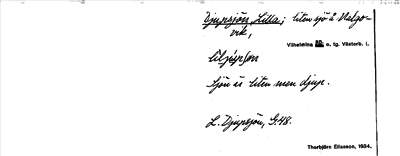 Djupsjön, Lilla; liten sjö å Malgo-
vik,
Vilhelmina sn. o. tg. Västerb. l.
Sjön är liten men djup.
L. Djupsjön, G.48.
Thorbjörn Eliasson, 1934.